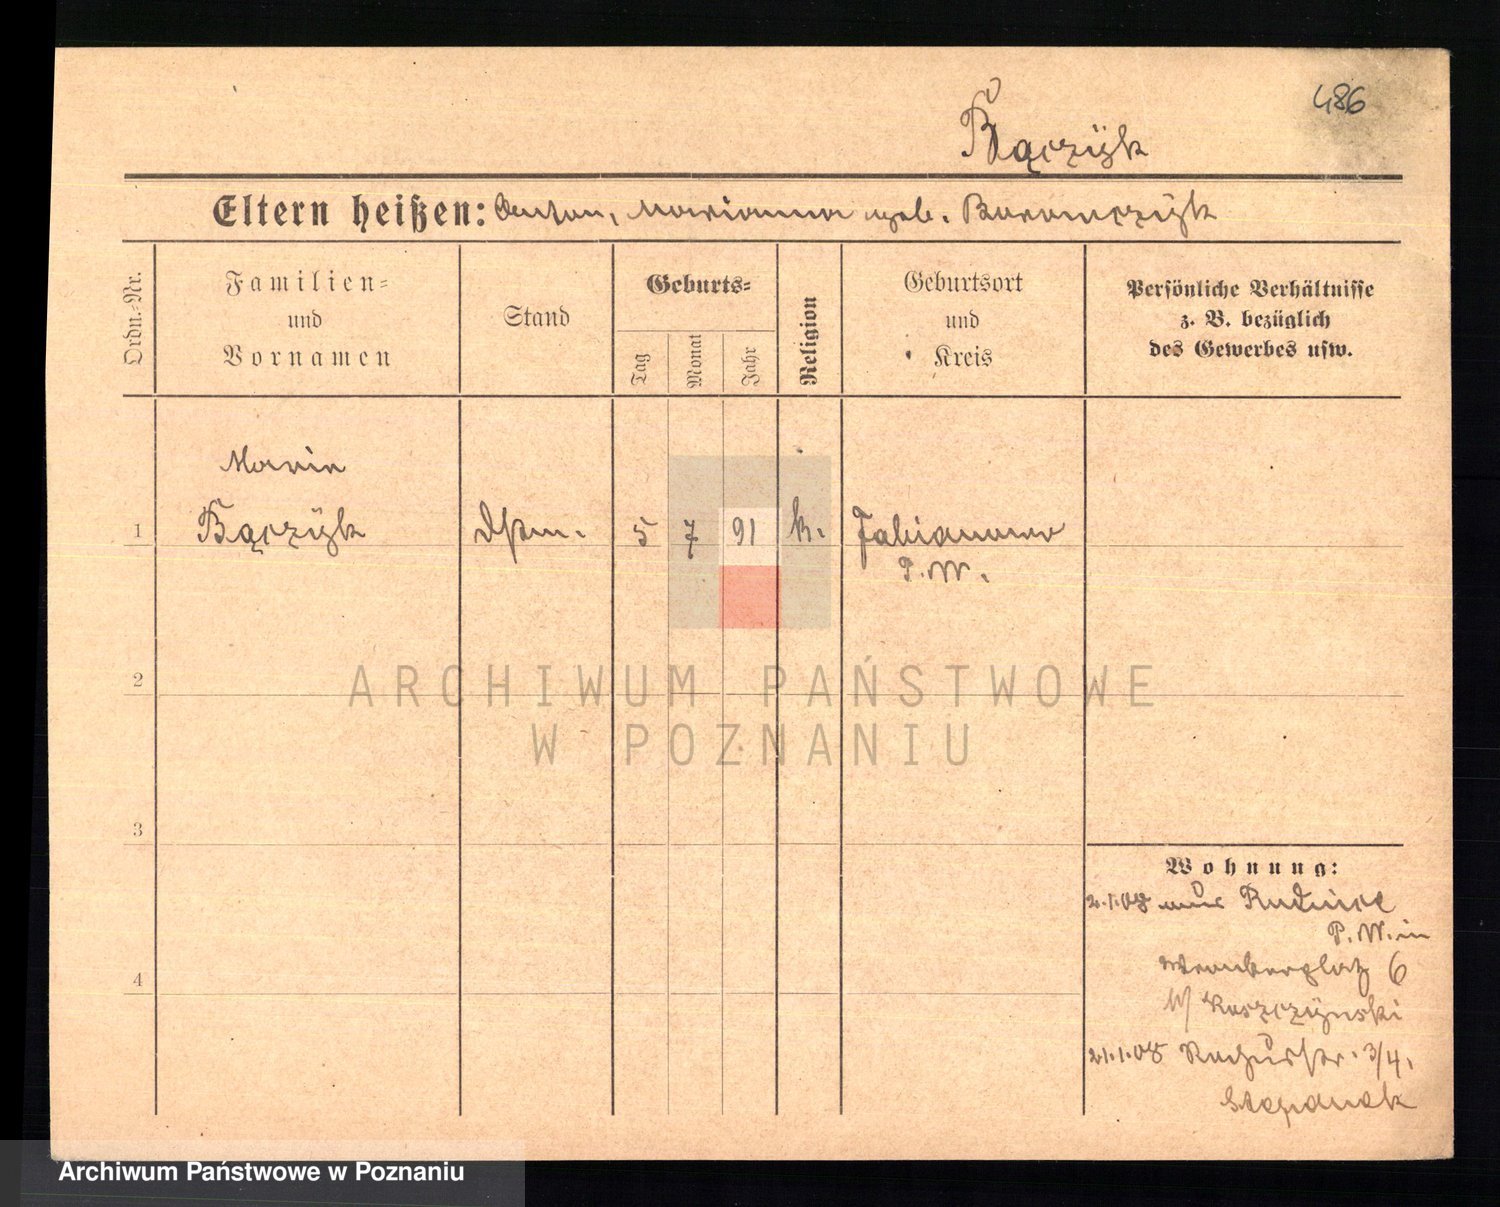 486
Bączÿk
Eltern heißen: Anton, Marianna geb. Baranczÿk
Ordn.-Nr.
Familien-
und
Vornamen
Stand
Geburts-
Tag
Monat
Jahr
Religion
Geburtsort
und
Kreis
Persönliche Verhältnisse
z. B. bezüglich
des Gewerbes usw.
Maria
1 Bączÿk Dstm. 5 7 91 k. Fabianowo
P. W.
2
ARCHIWUM PAŃSTWOWE
W POZNANIU
3
4
Wohnung:
2.1.08 aus Rudnicz
P. W. in
6
b/ Koszczÿnski
21.1.08 3/4.
Stepanek
Archiwum Państwowe w Poznaniu